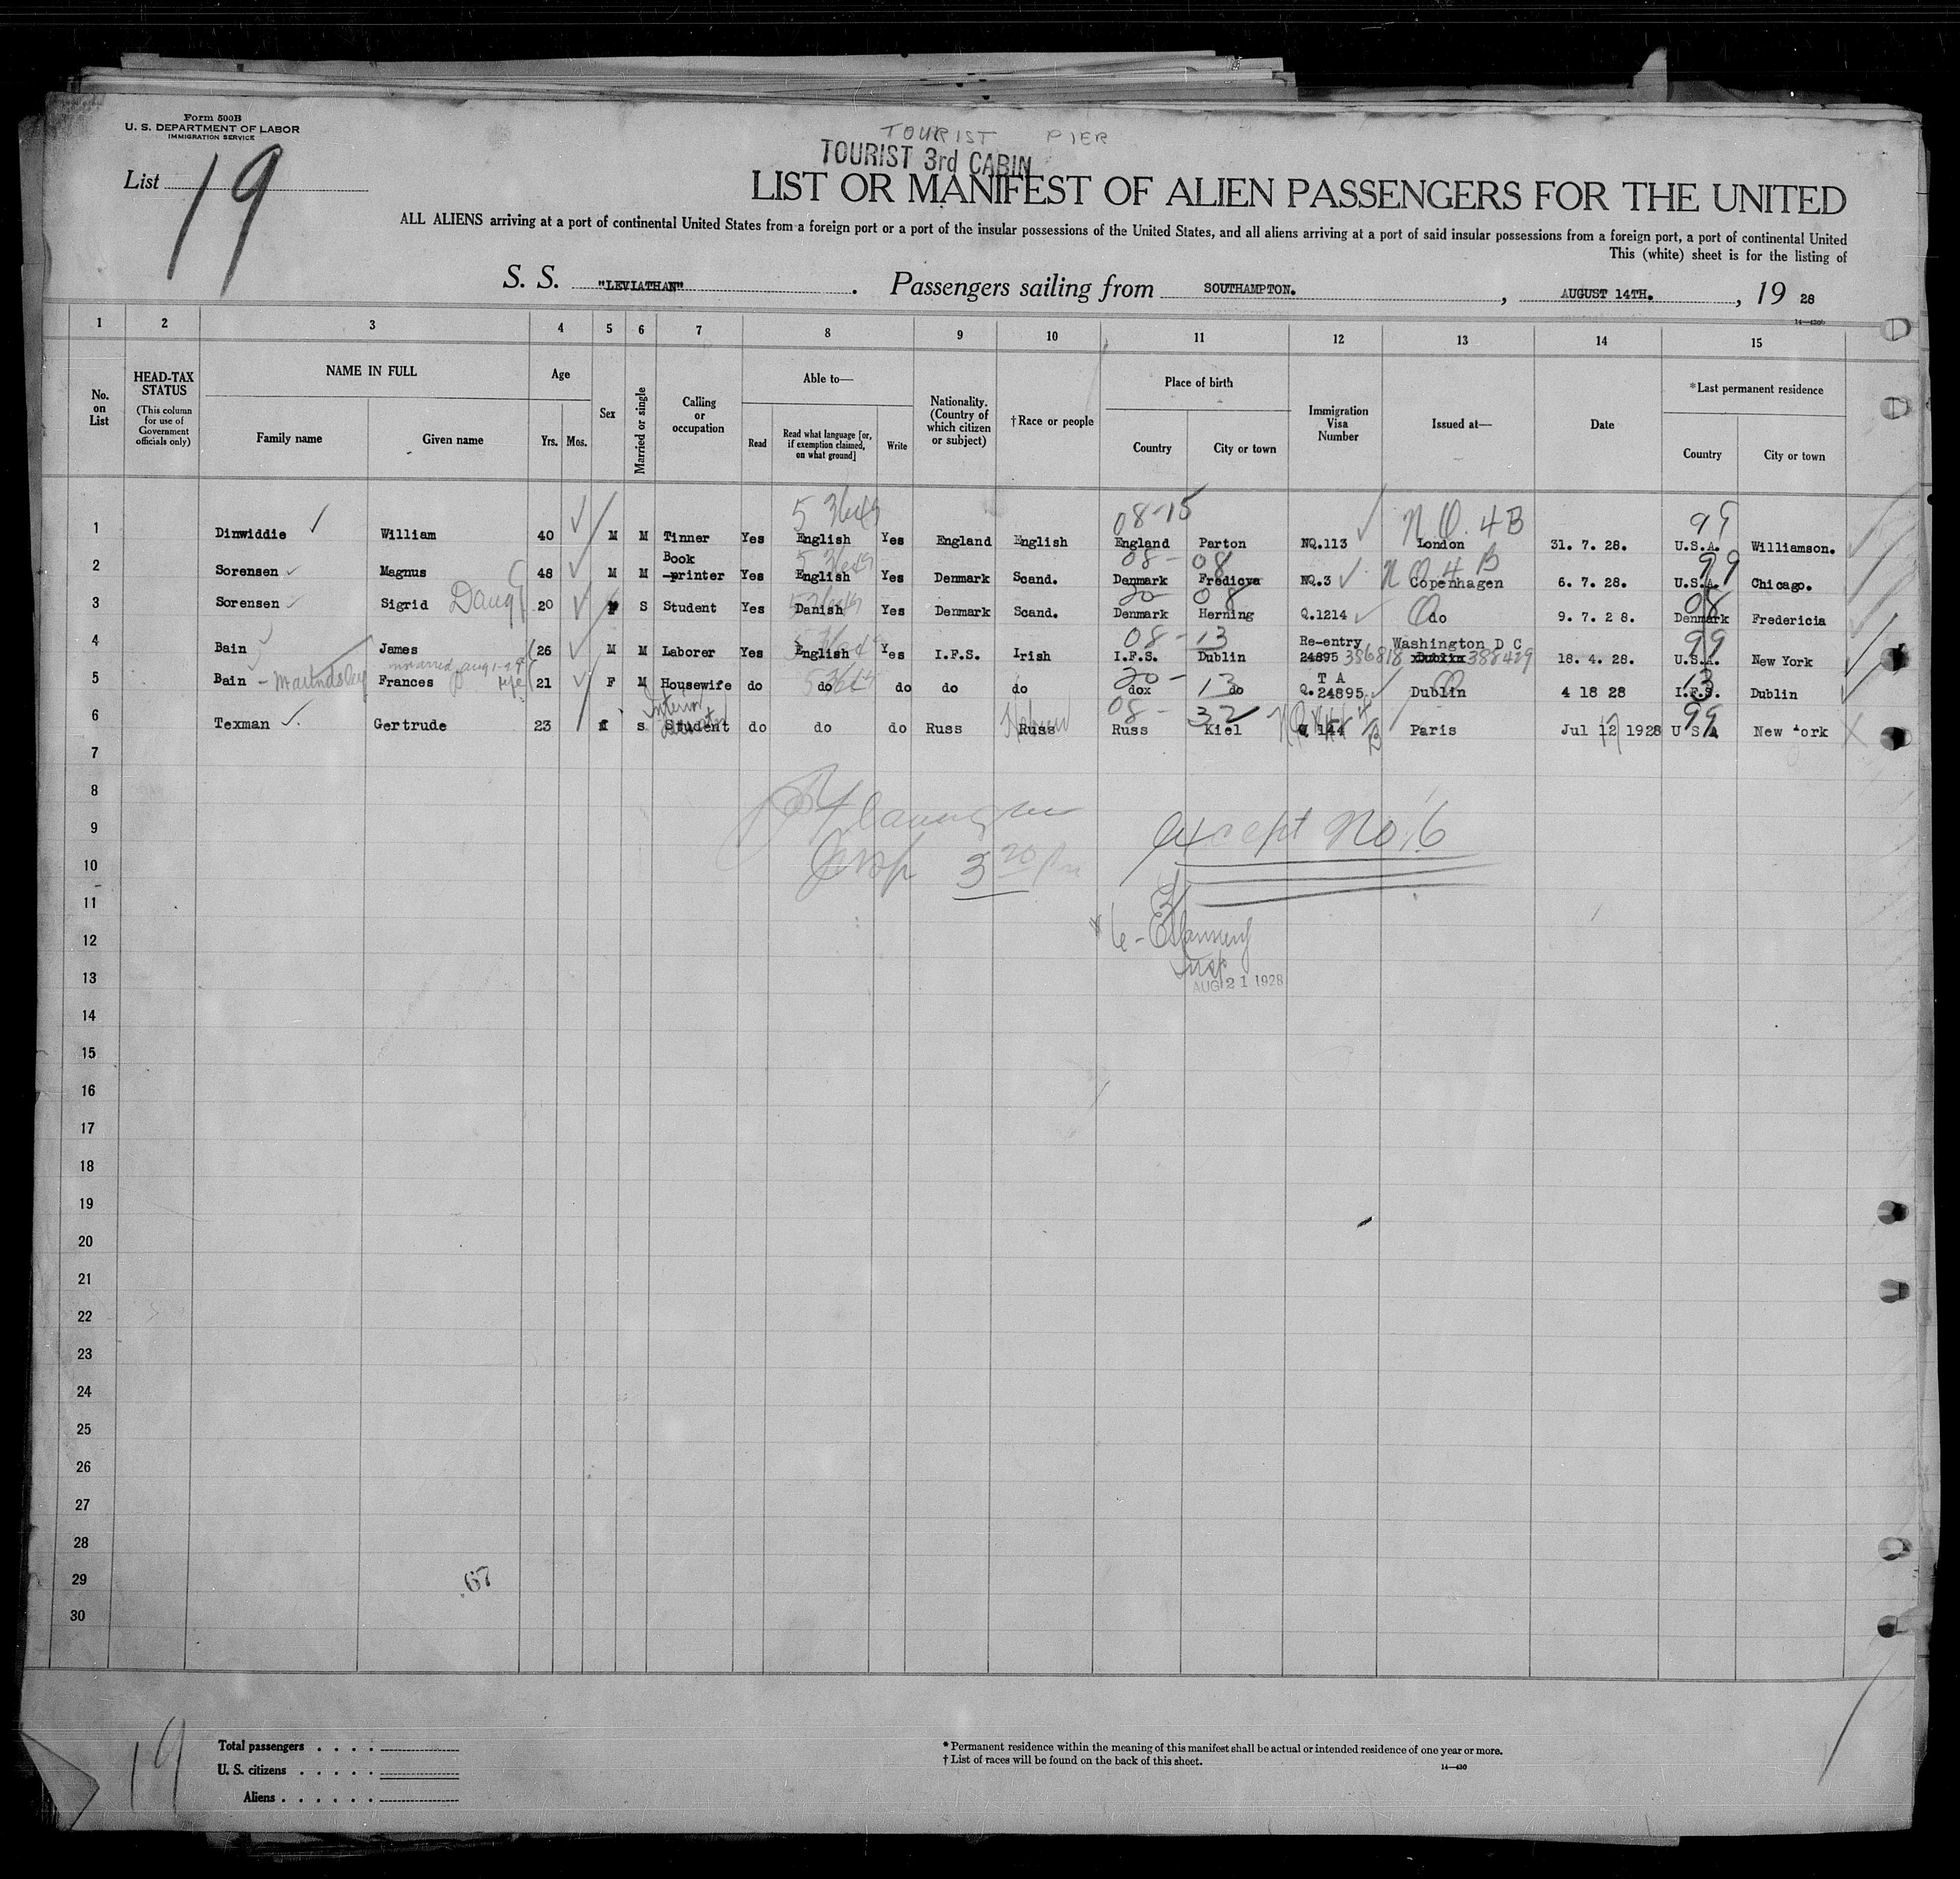 Form 500B
U. S. DEPARTMENT OF LABOR
IMMIGRATION SERVICE
TOURIST PIER
TOURIST 3rd CABIN
List 19
LIST OR MANIFEST OF ALIEN PASSENGERS FOR THE UNITED
ALL ALIENS arriving at a port of continental United States from a foreign port or a port of the insular possessions of the United States, and all aliens arriving at a port of said insular possessions from a foreign port, a port of continental United
This (white) sheet is for the listing of
S. S. "LEVIATHAN" . Passengers sailing from SOUTHAMPTON. , AUGUST 14TH. , 19 28
14—430b
1 2 3 4 5 6 7 8 9 10 11 12 13 14 15
No. on List
HEAD-TAX STATUS
(This column for use of Government officials only)
NAME IN FULL
Family name
Given name
Age
Yrs.
Mos.
Sex
Married or single
Calling or occupation
Able to—
Read
Read what language [or, if exemption claimed, on what ground]
Write
Nationality. (Country of which citizen or subject)
†Race or people
Place of birth
Country
City or town
Immigration Visa Number
Issued at—
Date
*Last permanent residence
Country
City or town
08-15 N.Q. 4B 99
1 Dinwiddie William 40 M M Tinner Yes English Yes England English England Parton NQ.113 London 31. 7. 28. U.S.A. Williamson.
Book 08- 08 N Q 4 B 99
2 Sorensen Magnus 48 M M -printer Yes English Yes Denmark Scand. Denmark Fredicva NQ.3 Copenhagen 6. 7. 28. U.S.A. Chicago.
20 08 08
3 Sorensen Sigrid Daug 20 F S Student Yes Danish Yes Denmark Scand. Denmark Herning Q.1214 do 9. 7. 2 8. Denmark Fredericia
08-13 Re-entry Washington D C 99
4 Bain James 26 M M Laborer Yes English Yes I.F.S. Irish I.F.S. Dublin 24895 386818 Dublin 388429 18. 4. 28. U.S.A. New York
20- 13 T A 13
5 Bain Frances 21 F M Housewife do do do do do dox do Q. 24895 Dublin 4 18 28 I.F.S. Dublin
08- 32 99
6 Texman Gertrude 23 S Student do do do Russ Russ Hebrew Russ Kiel 144 Paris Jul 12 1928 U S A New York
7
8
except No. 6
9
10
3 20
11
12
Insp
13
AUG 21 1928
14
15
16
17
18
19
20
21
22
23
24
25
26
27
28
29
67
30
19
Total passengers . . . .
U. S. citizens . . . . .
Aliens . . . . . .
* Permanent residence within the meaning of this manifest shall be actual or intended residence of one year or more.
† List of races will be found on the back of this sheet.
14—430